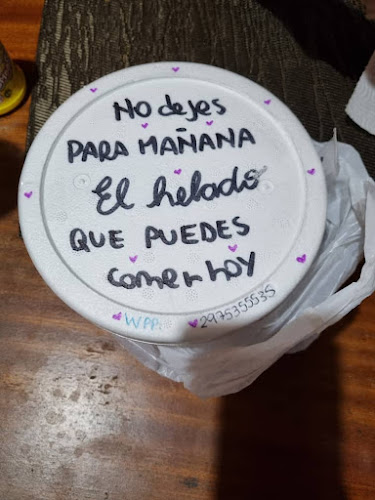 No dejes
PARA MAÑANA
El helado
QUE PUEDES
comer HOY
WPP. 2975355535